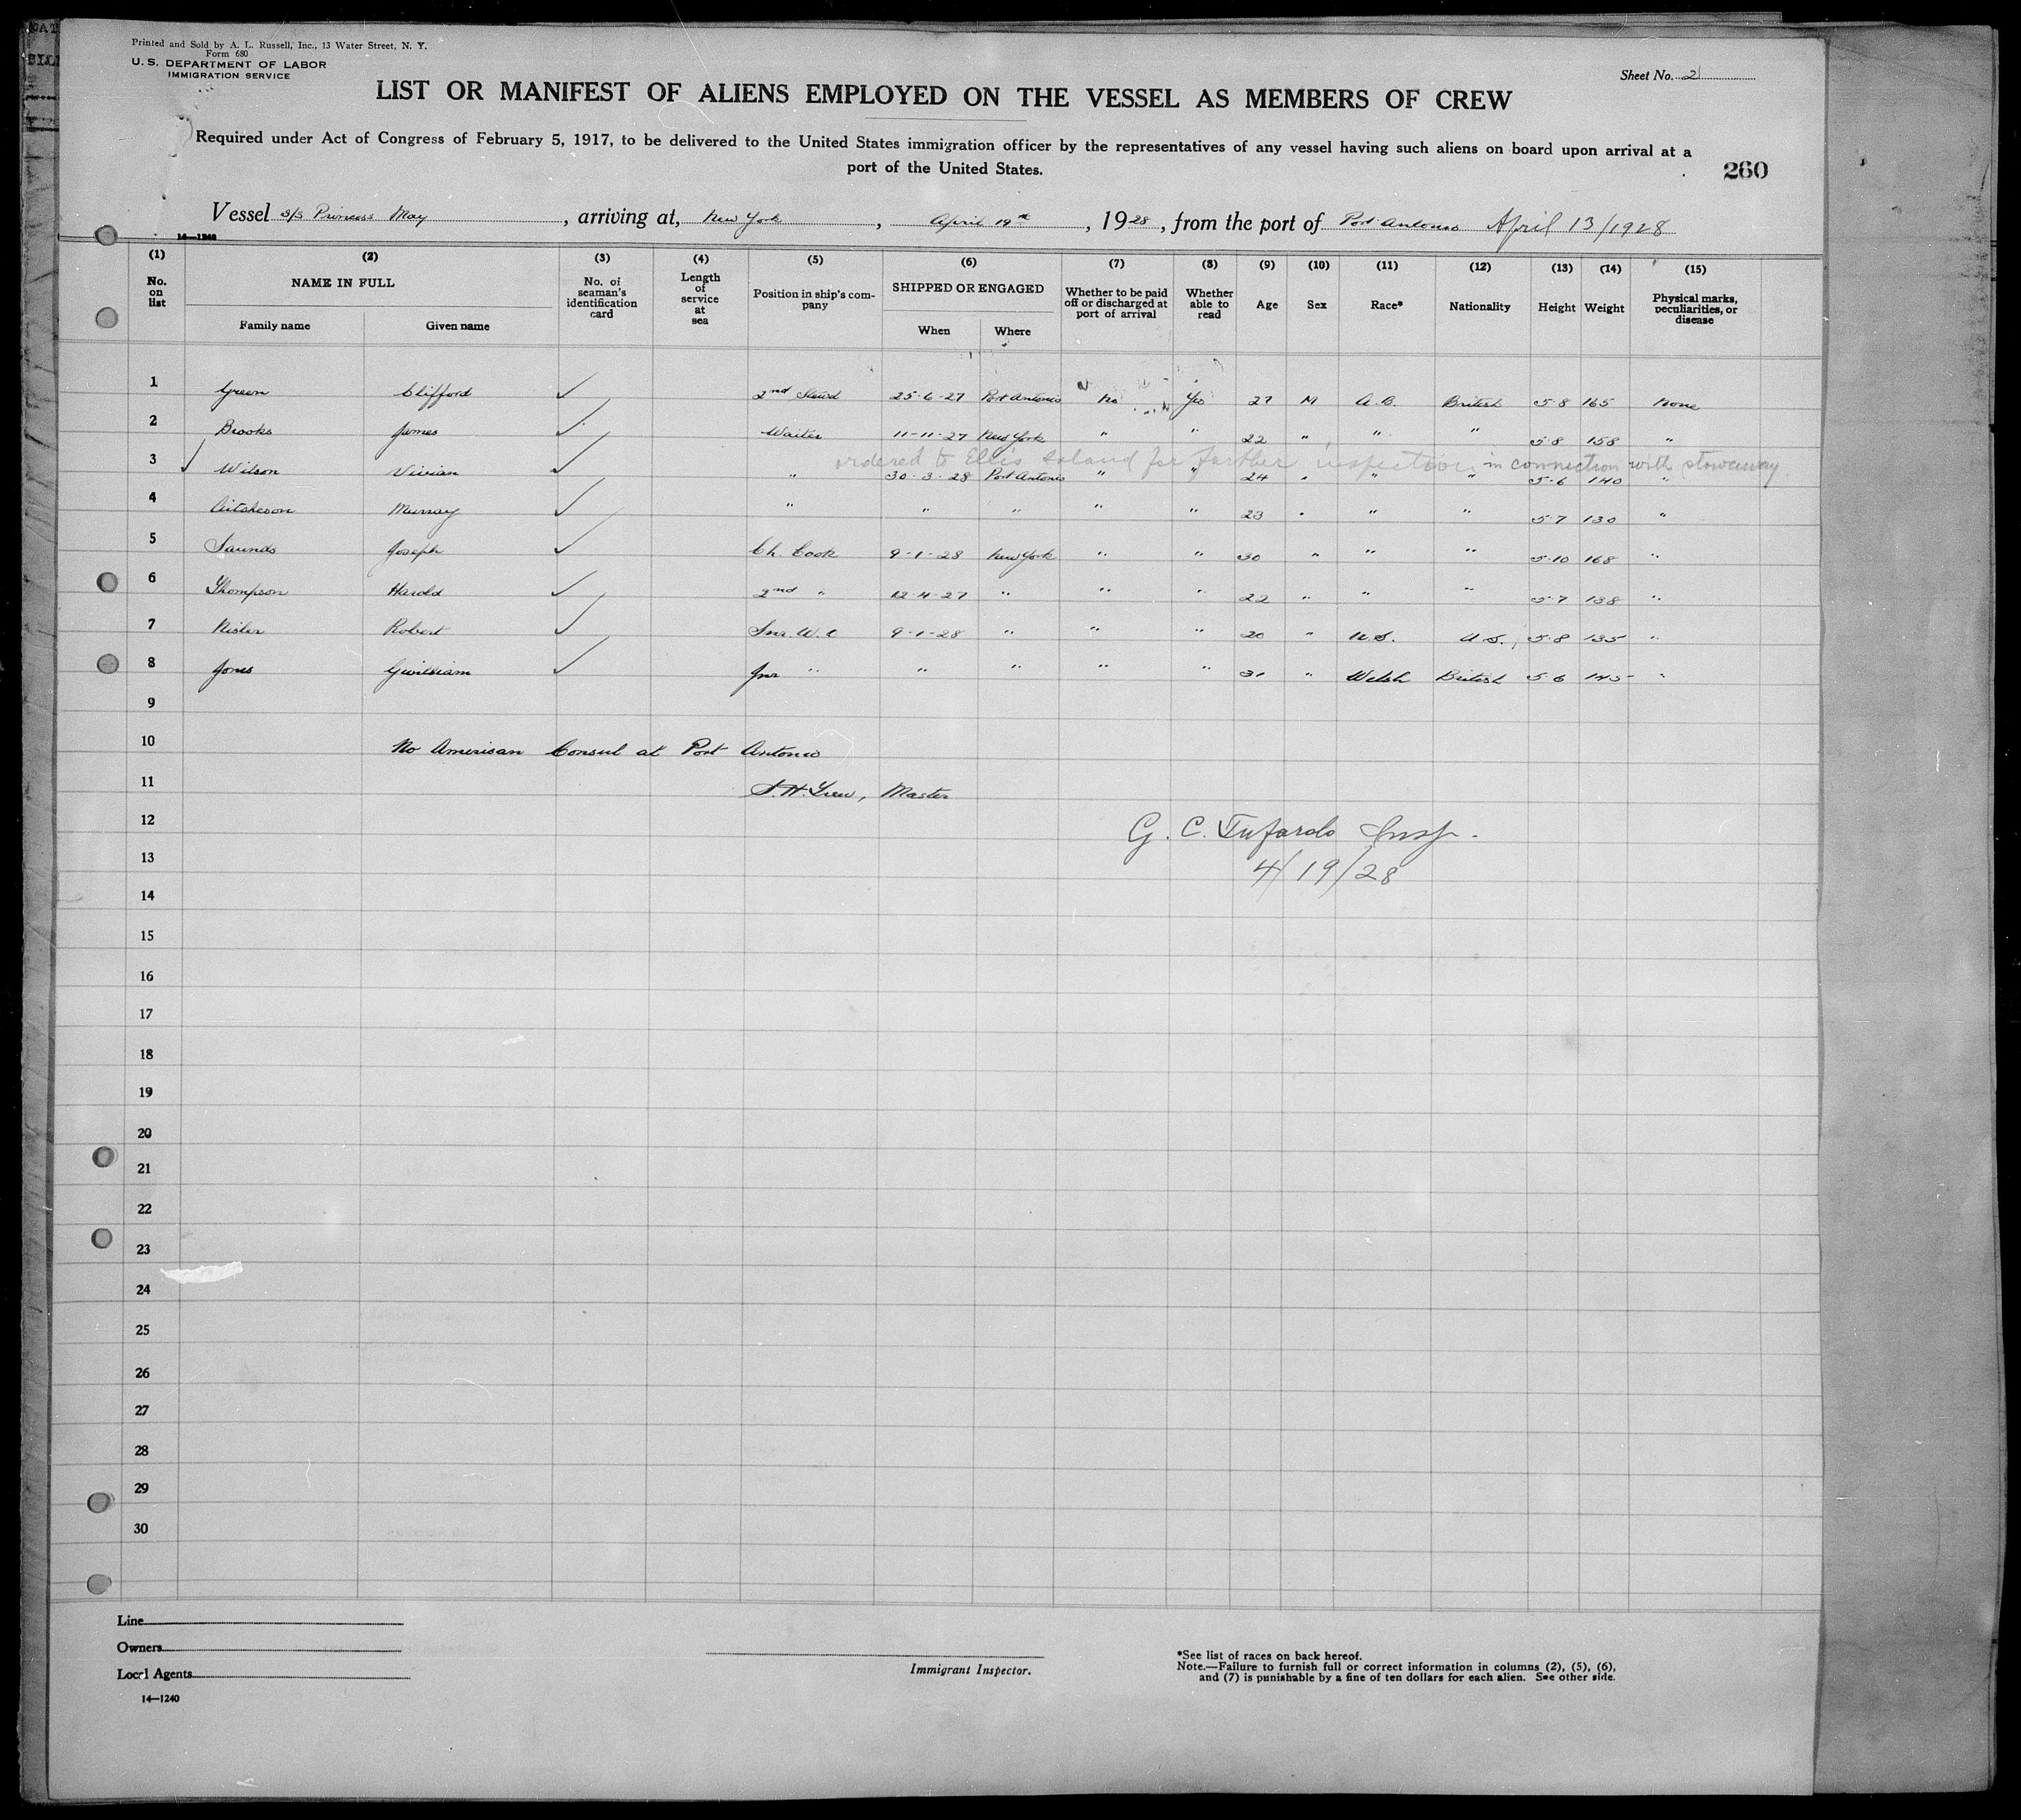 Printed and Sold by A. L. Russell, Inc., 13 Water Street, N. Y.
Form 680
U. S. DEPARTMENT OF LABOR
IMMIGRATION SERVICE
Sheet No. 2
LIST OR MANIFEST OF ALIENS EMPLOYED ON THE VESSEL AS MEMBERS OF CREW
Required under Act of Congress of February 5, 1917, to be delivered to the United States immigration officer by the representatives of any vessel having such aliens on board upon arrival at a
port of the United States.
260
Vessel S/S Princess May, arriving at, New York, April 19th, 1928, from the port of Port Antonio April 13/1928
14—1240
(1) (2) (3) (4) (5) (6) (7) (8) (9) (10) (11) (12) (13) (14) (15)
No. on list NAME IN FULL Family name Given name No. of seaman's identification card Length of service at sea Position in ship's company SHIPPED OR ENGAGED When Where Whether to be paid off or discharged at port of arrival Whether able to read Age Sex Race* Nationality Height Weight Physical marks, peculiarities, or disease
1 Green Clifford ✓ 2nd Steward 25-6-27 Port Antonio No Yes 27 M A.B. British 5-8 165 None
2 Brooks James ✓ Waiter 11-11-27 New York " " 22 " " " 5-8 158 "
ordered to Ellis Island for further inspection in connection with stowaway
3 ✓ Wilson Vivian ✓ " 30-3-28 Port Antonio " " 24 " " " 5-6 140 "
4 Aitcheson Murray ✓ " " " " " 23 " " " 5-7 130 "
5 Saunds Joseph ✓ Ch. Cook 9-1-28 New York " " 30 " " " 5-10 168 "
6 Thompson Harold ✓ 2nd " 12-4-27 " " " 22 " " " 5-7 138 "
7 Robert ✓ Snr. W.O 9-1-28 " " " 20 " U.S. U.S. 5-8 135 "
8 Jones Gwilliam ✓ Jnr " " " " " 31 " Welsh British 5-6 145 "
9
10 No American Consul at Port Antonio
11 Master
12 G. C. Tufardo Insp.
13 4/19/28
14
15
16
17
18
19
20
21
22
23
24
25
26
27
28
29
30
Line
Owners
Local Agents
14—1240
Immigrant Inspector.
*See list of races on back hereof.
Note.—Failure to furnish full or correct information in columns (2), (5), (6),
and (7) is punishable by a fine of ten dollars for each alien. See other side.